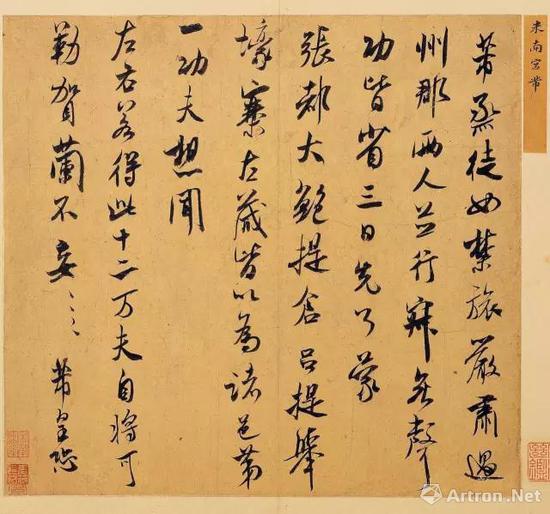 米南宮芾
芾烝徒如禁旅嚴肅過
州郡兩人並行寂無聲
功皆省三日先了蒙
張都大鮑提倉呂提舉
壕寨左藏皆以為諸邑第
一功夫想聞
左右若得此十二万夫自將可
勒賀蘭不妄〻〻 芾皇恐
Artron.Net